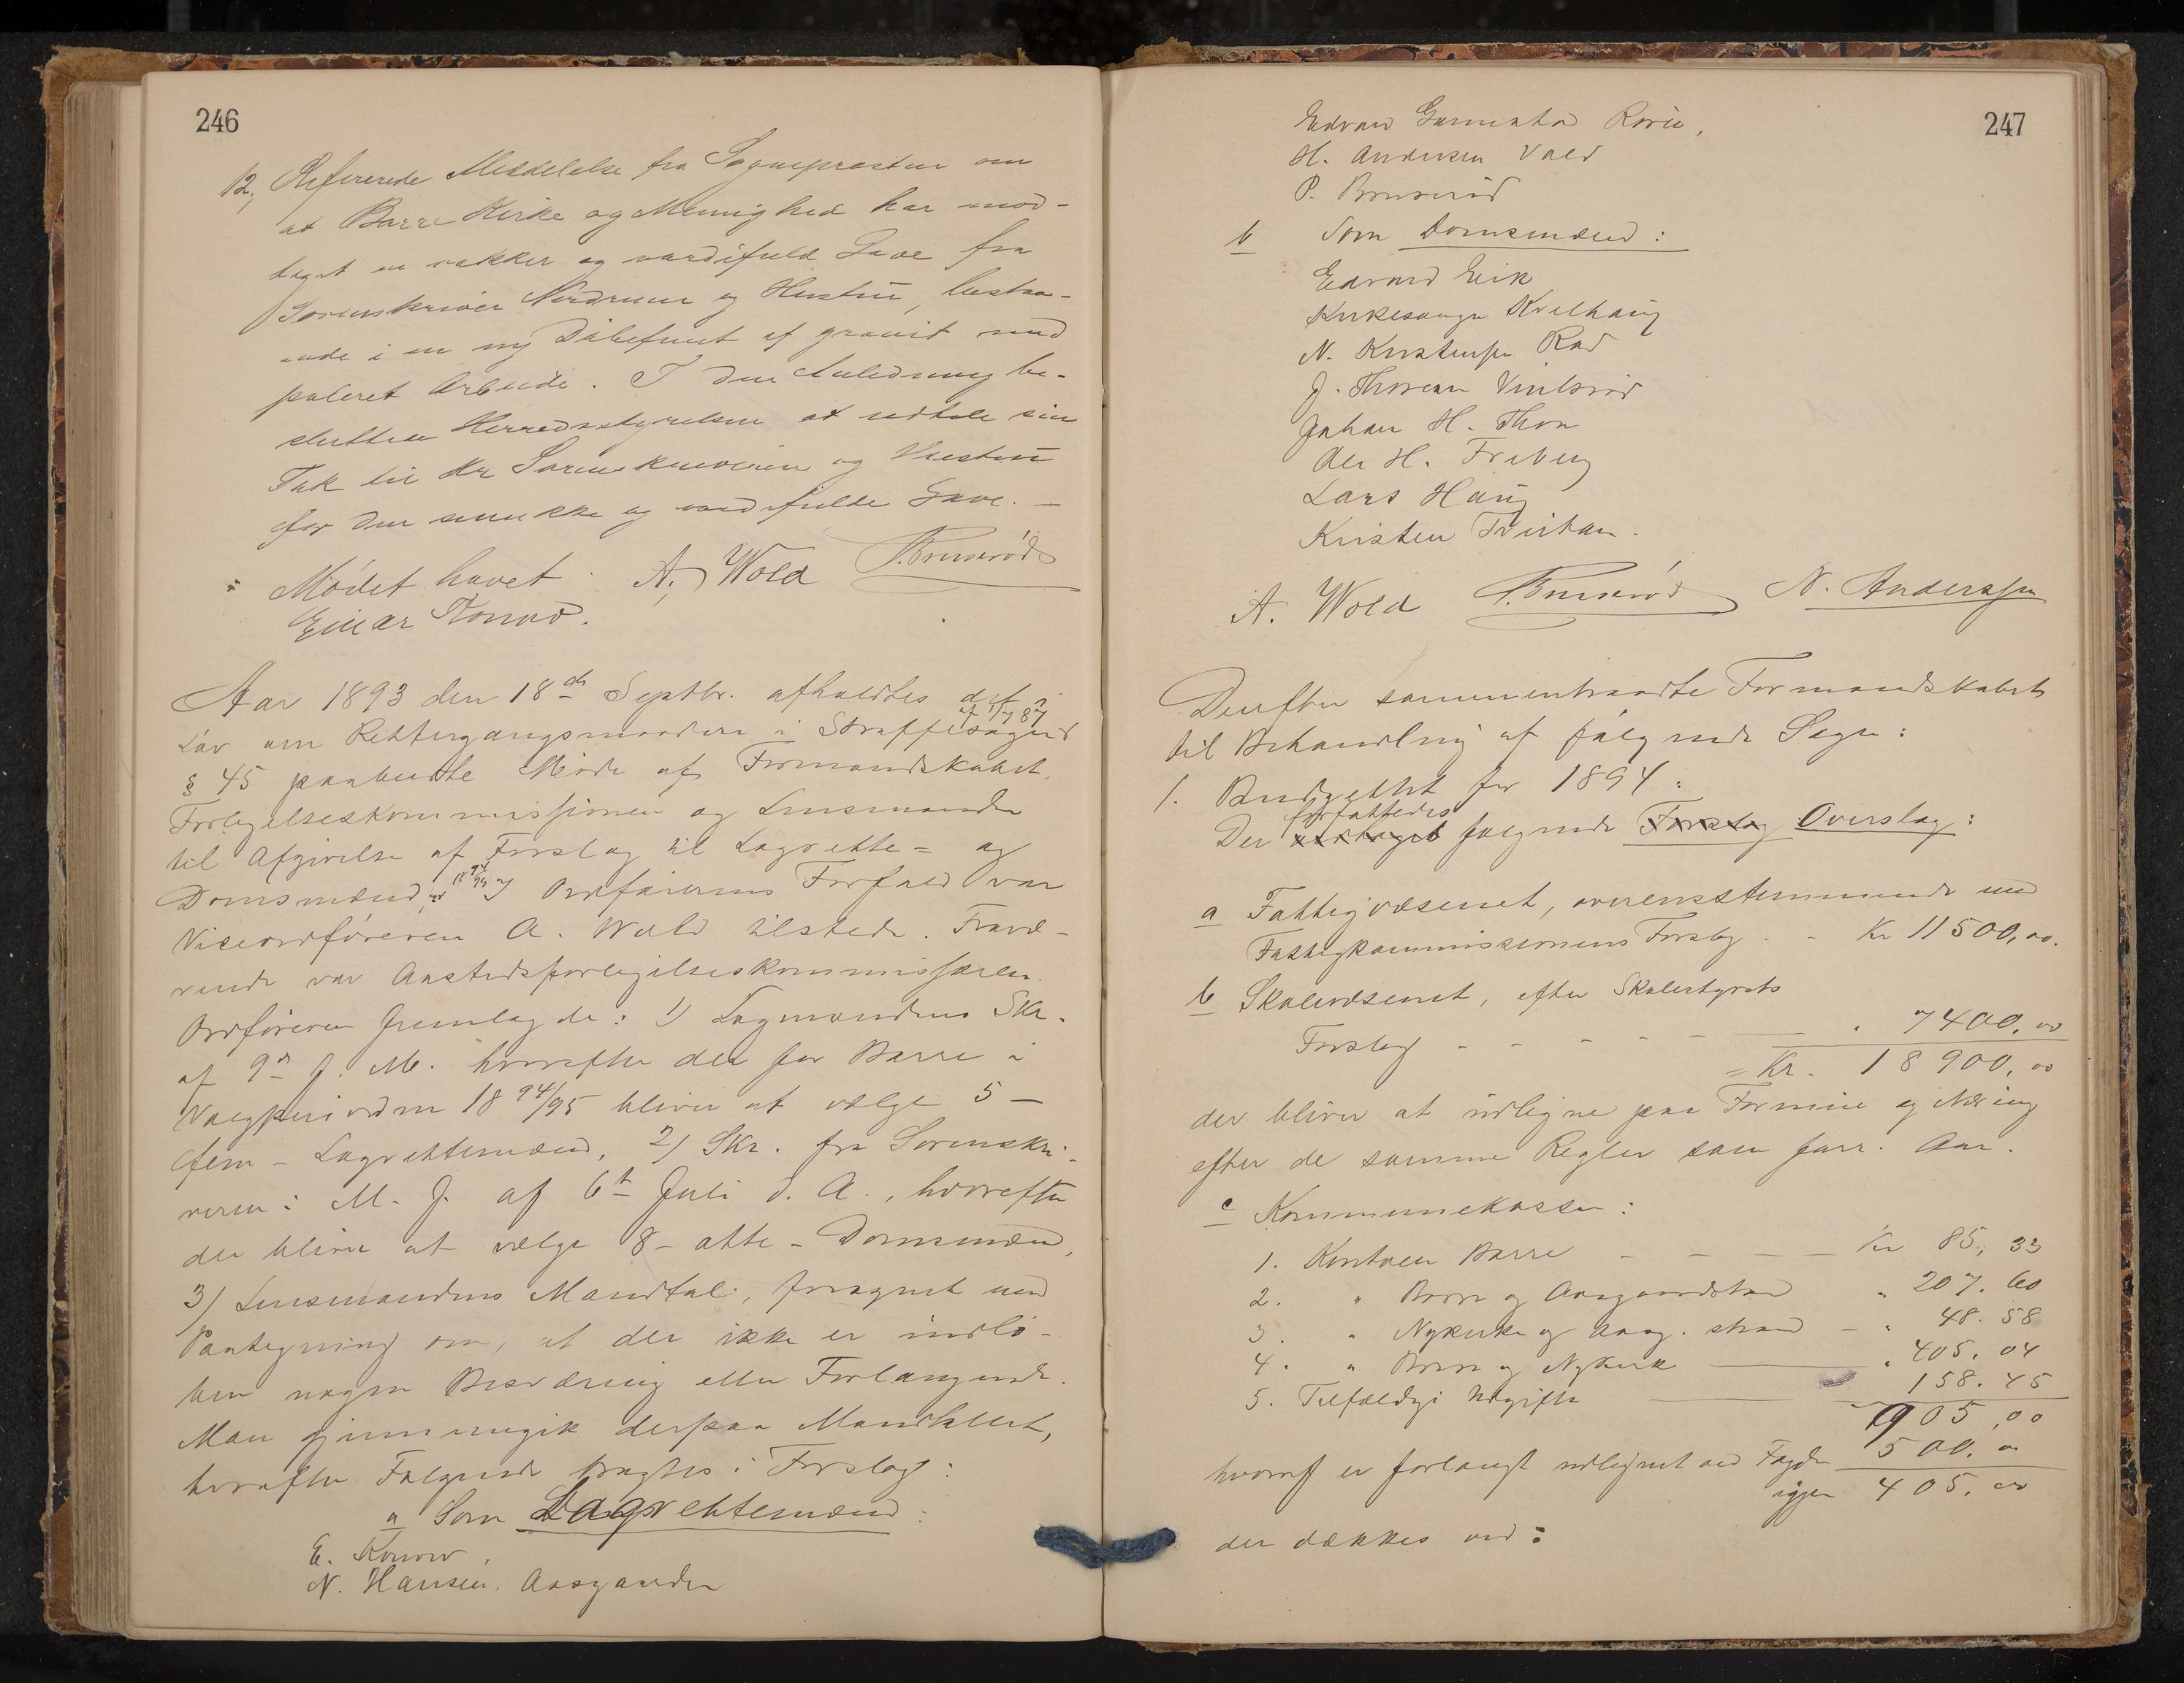 246
12, Refererede Meddelelse fra Sognepræsten om
at Borre Kirke og Menighed har mod-
taget en vakker og værdifuld Gave fra
Sorenskriver Nordrum og Hustru, bestaa-
ende i en ny Døbefunt af granit med
poleret Arbeide. I den Anledning be-
sluttede Herredsstyrelsen at udtale sin
Tak til Hr Sorenskriveren og Hustru
for den smukke og værdifulde Gave. —
Mødet hævet. A. Wold P. Brunsrød
Einar Konow.
Aar 1893 den 18de Septbr. afholdtes det i
af 1/7 87
Lov om Rettergangsmaaden i Straffesager
§ 45 paabudte Møde af Formandskabet,
Forligelseskommissionen og Lensmanden
til Afgivelse af Forslag til Lagrette- og
Domsmænd for 18 94/95. I Ordførerens Forfald var
Viceordføreren A. Wold tilstede. Fravæ-
rende var Aastedsforligelseskommissæren.
Ordføreren fremlagde: 1) Lagmandens Skr.
af 9de f. M. hvorefter der for Borre i
Valgperioden 18 94/95 bliver at vælge 5 —
fem — Lagrettemænd, 2) Skr. fra Sorenskri-
veren i M. J. af 6te Juli d. A., hvorefter
der bliver at vælge 8 - otte - Domsmænd,
3) Lensmandens Mandtal, forsynet med
Paategning om, at der ikke er indlø-
ben nogen Besværing eller Forlangende.
Man gjennemgik derpaa Mandtallet,
hvorefter Følgende bragtes i Forslag:
a Som Lagrettemænd:
E. Konow,
N. Hansen, Aasgaarden
247
Edvard Rørie,
H. Andersen Vold
P. Brunsrød
b Som Domsmænd:
Edvard Eik
Kirkesanger Kvelhaug
N. Kristensen Rød
J. Thoresen
Johan H. Thon
Ole H. Freberg
Lars Haug
Kristen
A. Wold P. Brunsrød N. Anderssen
Derefter sammentraadte Formandskabet
til Behandling af følgende Sager:
1. Budgettet for 1894:
forfattedes
Der vedtaget følgende Forslag Overslag:
a Fattigvæsenet, overensstemmende med
Fattigkommissionens Forslag - - Kr 11500,00.
b Skolevæsenet, efter Skolestyrets
Forslag - - - - - " 7400,00
= Kr. 18900,00
der bliver at udligne paa Formue og Næring
efter de samme Regler som forr. Aar.
c Kommunekassen:
1. Kontoen Borre - - - - Kr 85,33
2. " Borre og Aasgaardstrand " 207.60
3. " Nykirke og Aasg. strand - " 48.58
4. " Borre og Nykirke — " 405.04
5. Tilfældige Udgifter — 158.45
905,00
hvoraf er forlangt udlignet ved Fogden 500.00
igjen 405.00
der dækkes ved: